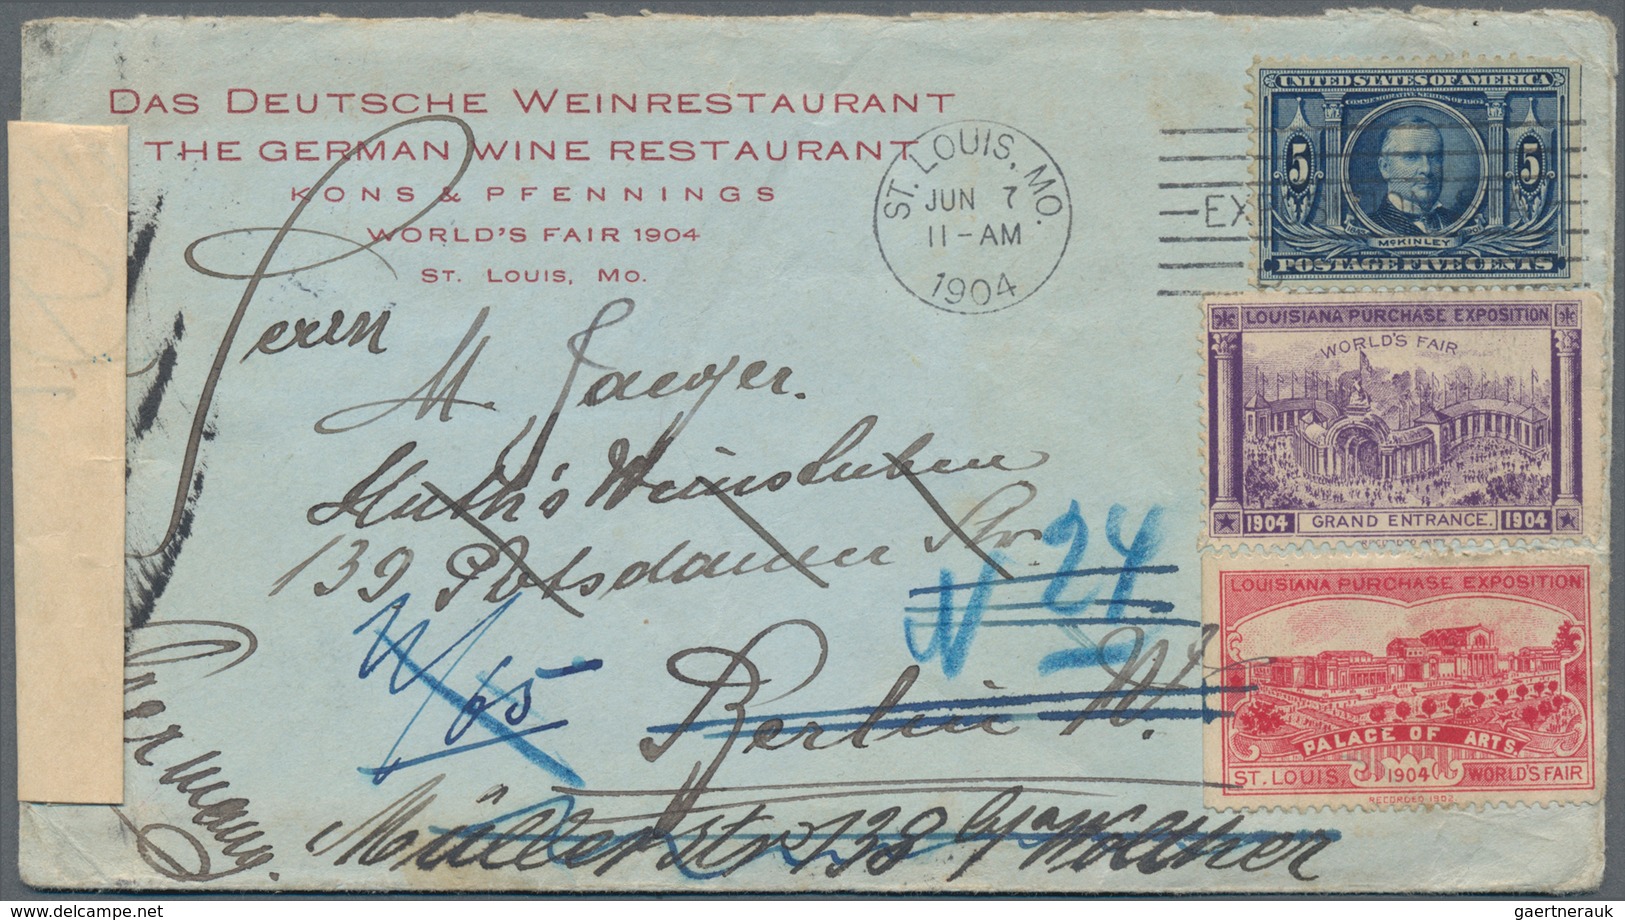 DAS DEUTSCHE WEINRESTAURANT
THE GERMAN WINE RESTAURANT
KONS & PFENNINGS
WORLD'S FAIR 1904
ST. LOUIS, MO.
ST. LOUIS, MO.
JUN 7
11-AM
1904
UNITED STATES OF AMERICA
COMMEMORATIVE SERIES OF 1904
5 5
McKINLEY
POSTAGE FIVE CENTS
LOUISIANA PURCHASE EXPOSITION
WORLD'S FAIR
1904 GRAND ENTRANCE. 1904
LOUISIANA PURCHASE EXPOSITION
PALACE OF ARTS.
ST. LOUIS, 1904 WORLD'S FAIR
RECORDED 1902
Herrn
M. Jaeger.
Huth's Weinstuben
139 Potsdamer Str.
N 24
N/65
Berlin W.
Germany.
Müllerstr 138
Walther
gaertnerauk / delcampe.net